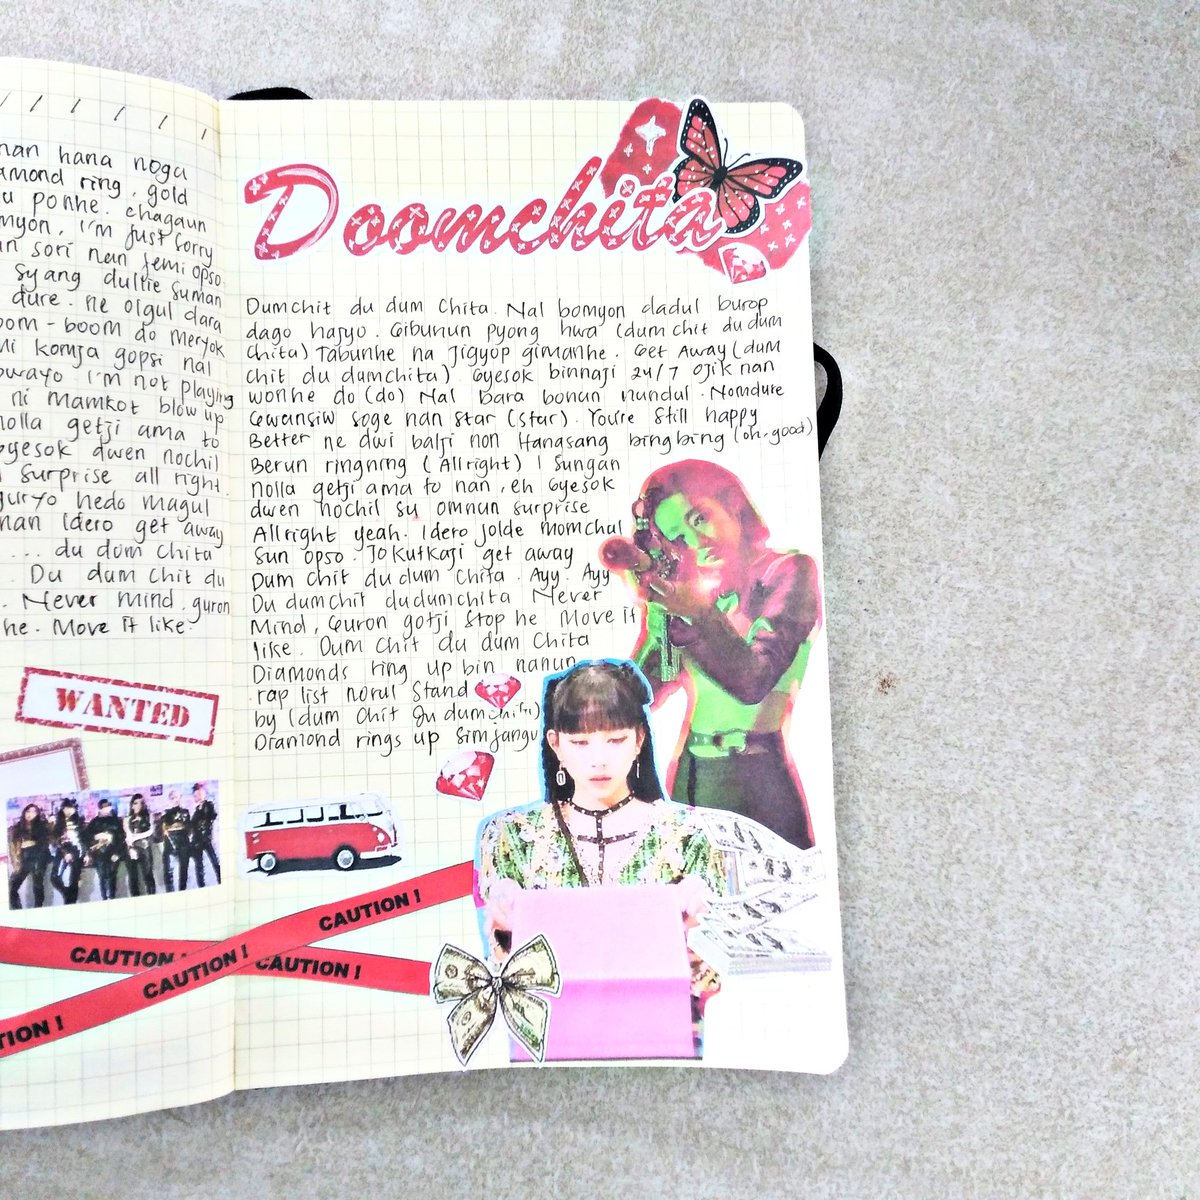 nan hana noga
amond ring, gold
u ponhe. chagaun
myon, I'm just sorry
an sori nan semi opso
syang dultie suman
dure. ne olgul dara
oom-boom do meryok
Mi komja gopsi nal
owayo. I'm not playing
ni mamkot blow up
nolla getji ama to
gyesok dwen nochil
surprise all right.
guryo hedo magul
nan Idero get away
... du dom chita
. Du dum chit du
. Never mind, guron
he. Move it like.
WANTED
CAUTION!
CAUTION!
CAUTION!
CAUTION!
TION!
Doomchita
Dumchit du dum chita. Nal bomyon dadul burop
dago haryo. Gibunun pyong hwa (dum chit du dum
chita) Tabunhe na Jigyop gimanhe. Get Away (dum
chit du dumchita). Gyesok binnaji 24/7 ojik nan
wonhe do (do) Nal bara bonun nundul. Nomdure
Gwansiw soge nan star (star). You're still happy
Better ne dwi balji non Hangsang bingbing (oh, good)
Berun ringning (Allright) I sungan
nolla getji ama to nan, eh Gyesok
dwen nochil su omnun surprise
Allright yeah. Idero jolde momchul
sun opso. Jokutkaji get away
Dum chit du dum chita. Ayy. Ayy
Du dumchit dudumchita Never
Mind, Guron gotji stop he. Move it
like. Dum chit du dum chita
Diamonds ring up bin nanun
rap list norul stand
by (dum chit du dumchita)
Diamond rings up simjangu